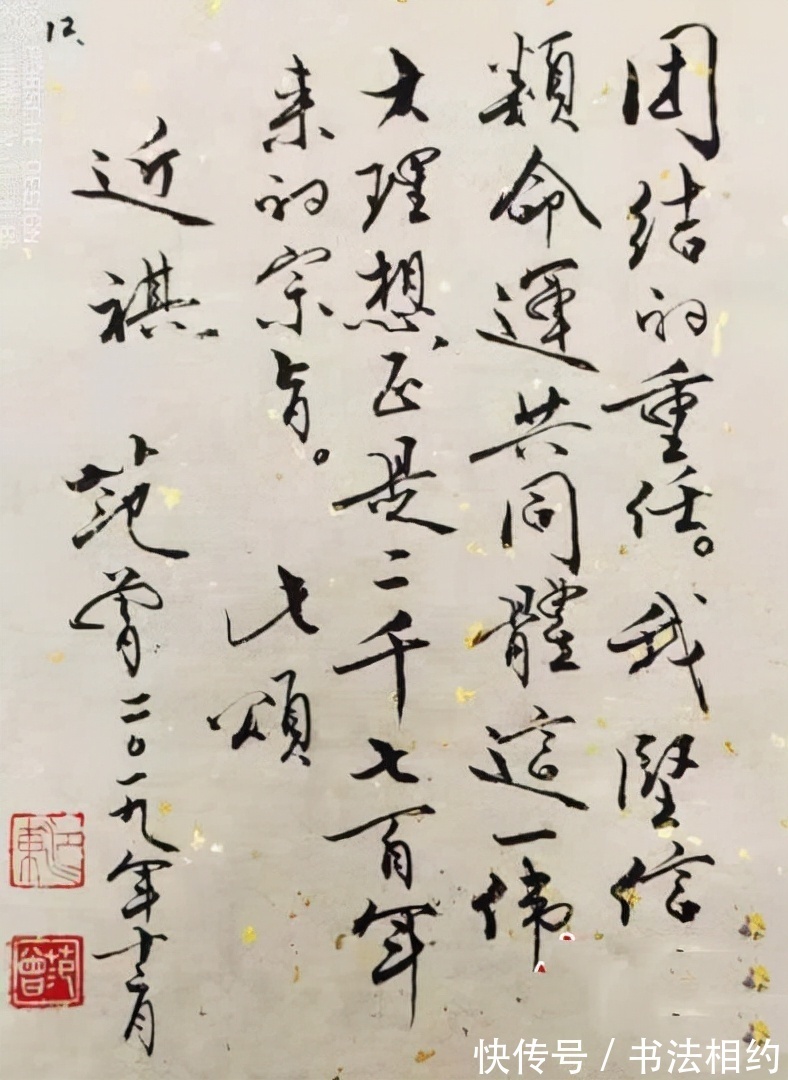 12、
团结的重任。我堅信
類命運共同體這一偉
大理想正是二千七百年
来的宗旨。
此頌
近祺
范曾二〇一九年十二月
范曾
快传号 / 书法相约